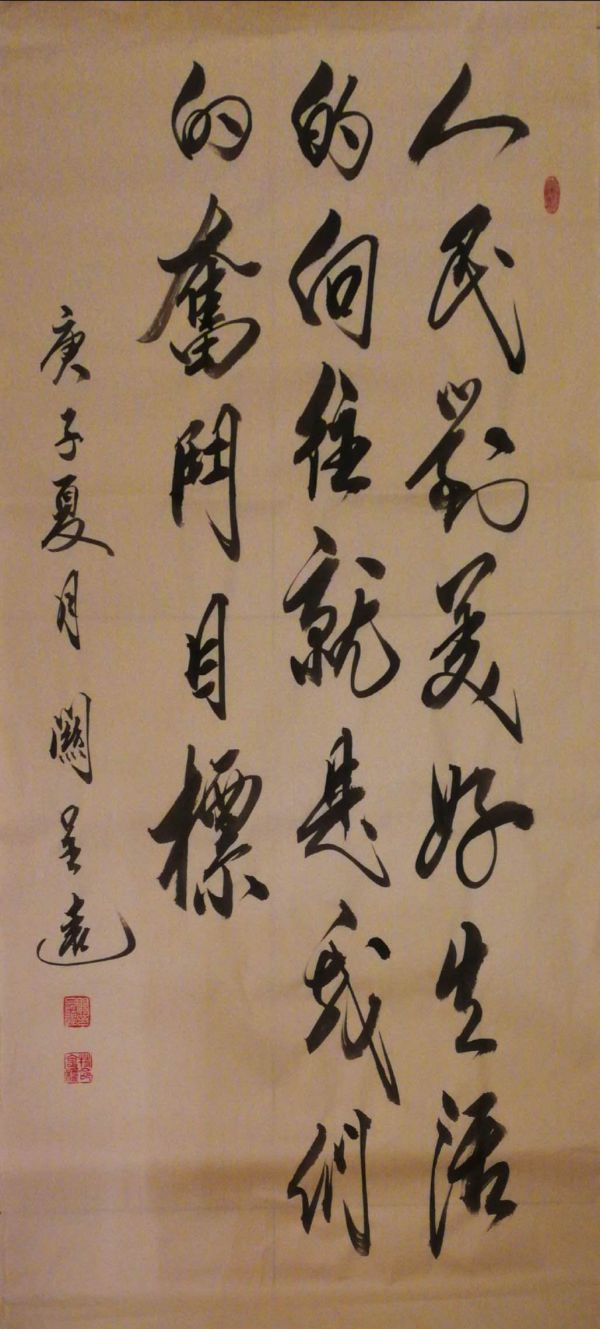 人民對美好生活
的向往就是我們
的奮鬥目標
庚子夏月關呈遠